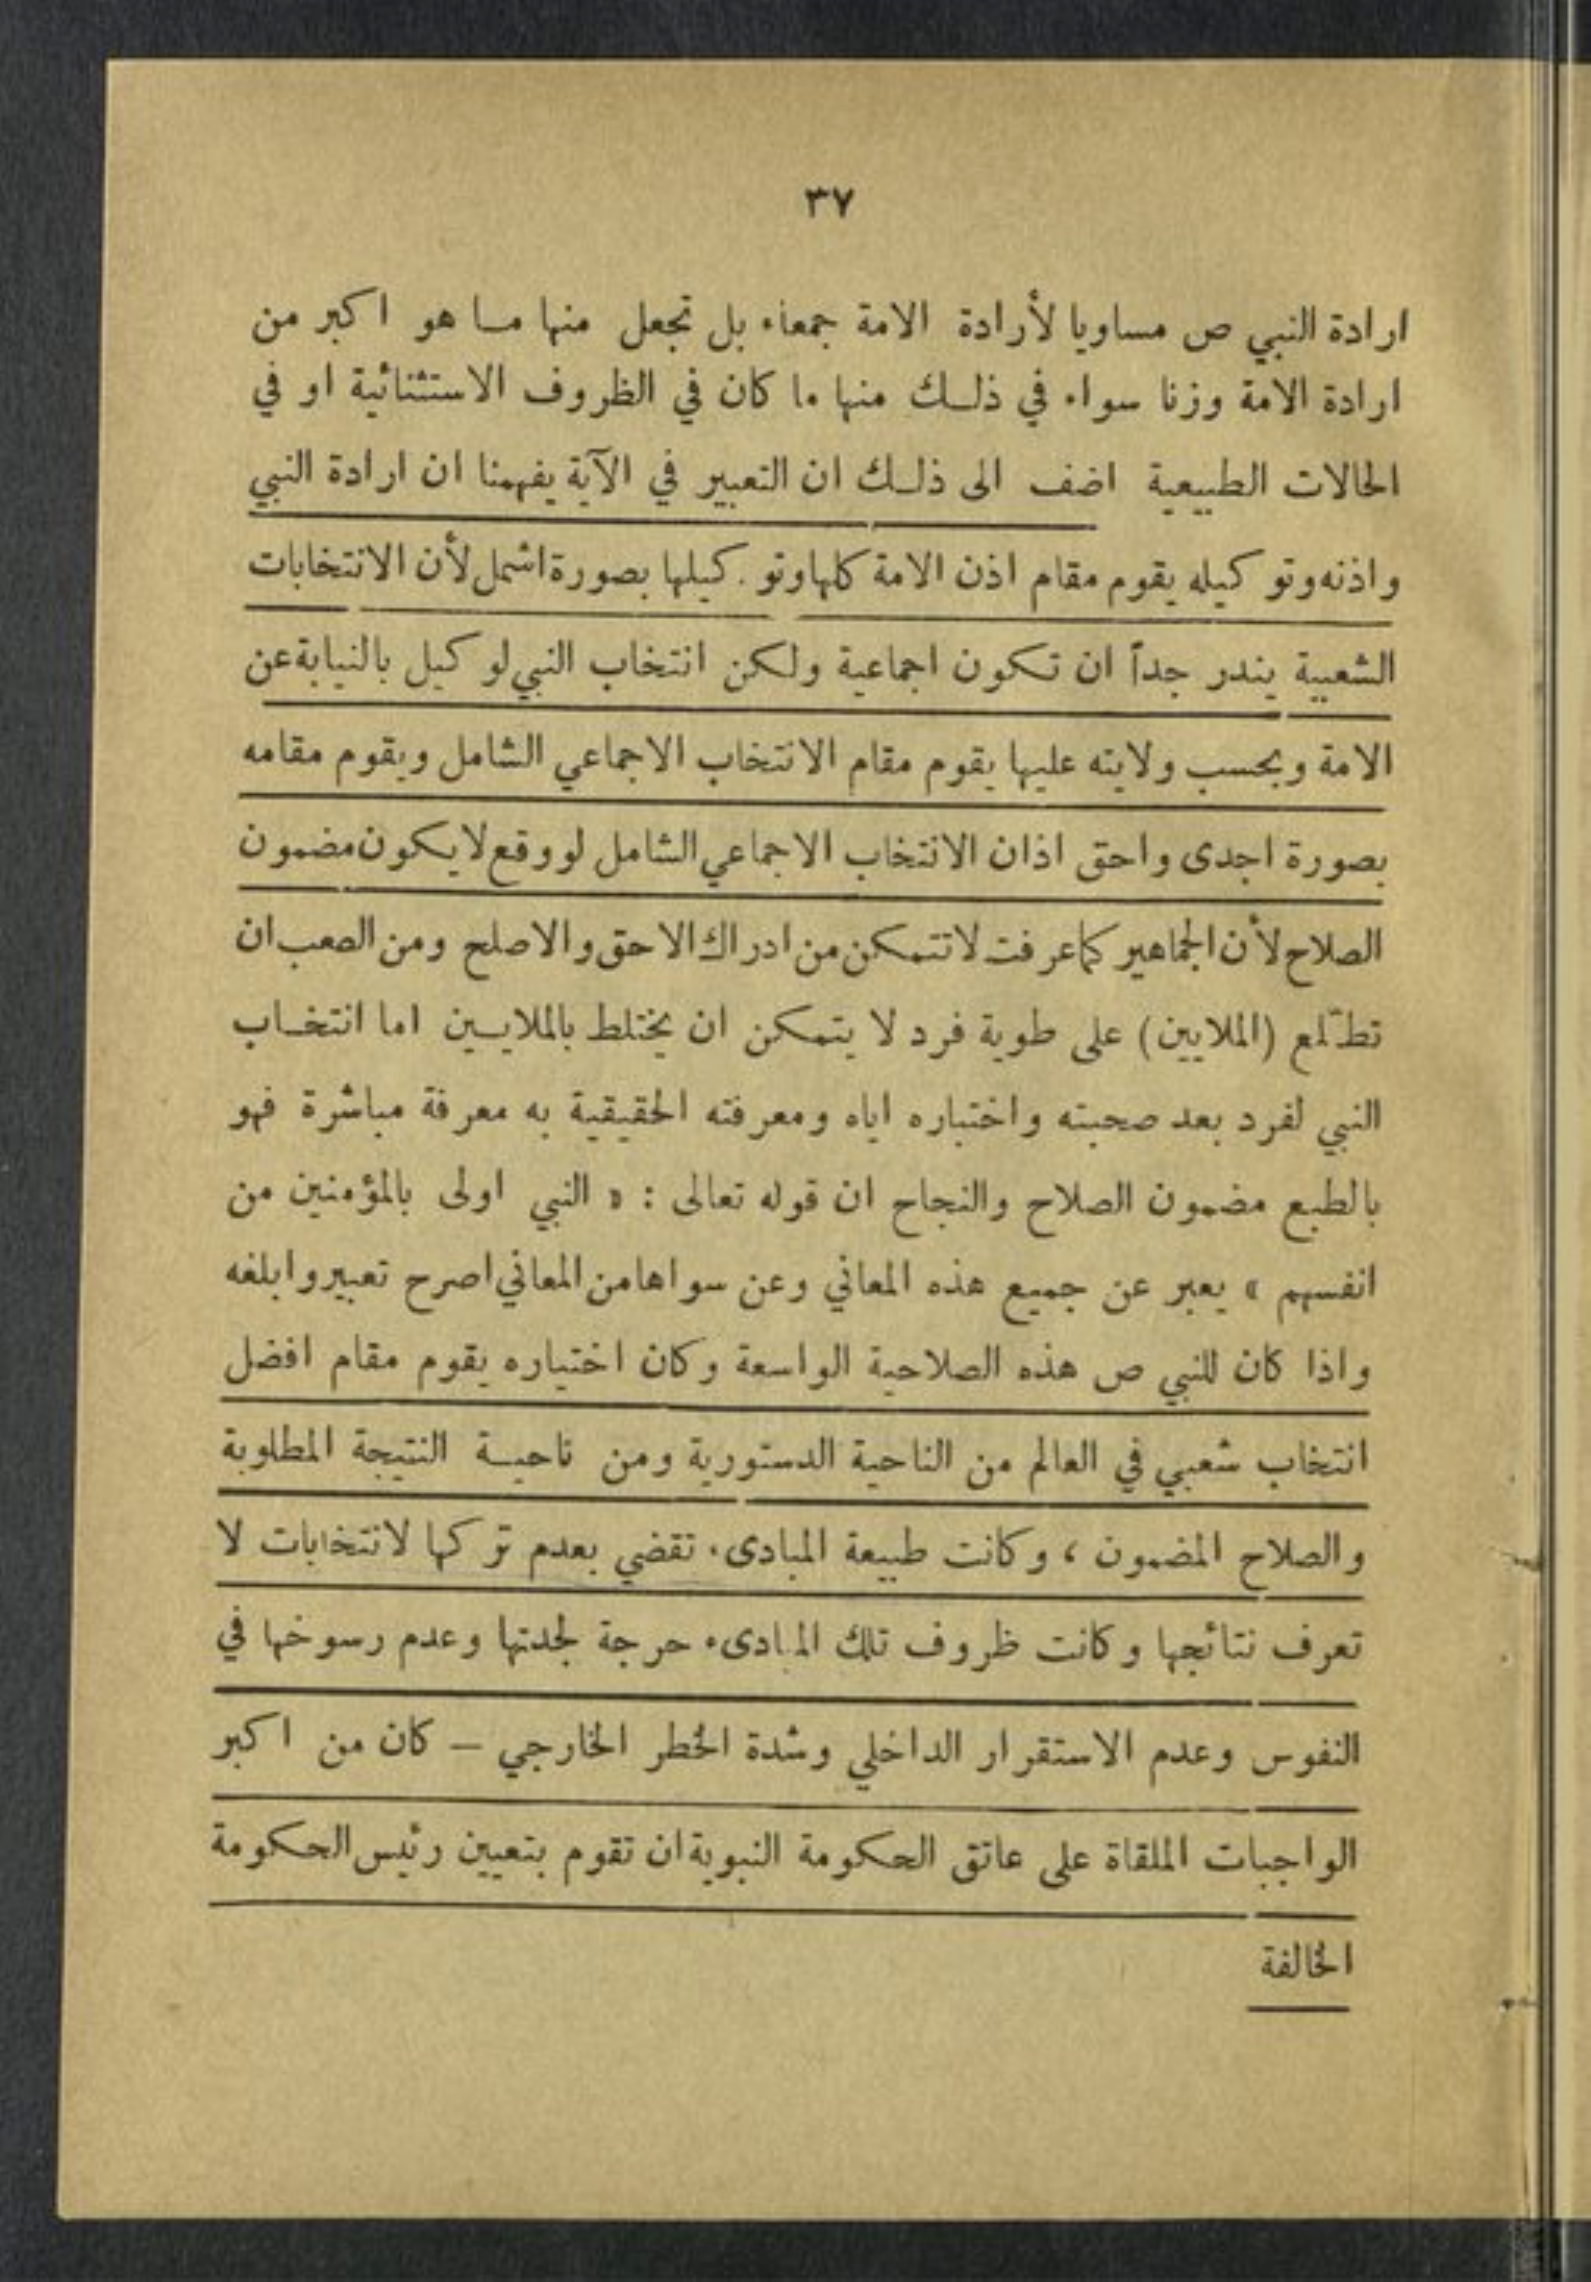 ٣٧
ارادة النبي ص مساويا لأرادة الامة جمعاء بل تجعل منها مـا هو اكبر من
ارادة الامة وزنا سواء في ذلـك منها ما كان في الظروف الاستثنائية او في
الحالات الطبيعية اضف الى ذلـك ان التعبير في الآية يفهمنا ان ارادة النبي
واذنه وتوكيله يقوم مقام اذن الامة كلها وتوكيلها بصورة اشمل لأن الانتخابات
الشعبية يندر جداً ان تكون اجماعية ولكن انتخاب النبي لوكيل بالنيابة عن
الامة وبحسب ولايته عليها يقوم مقام الانتخاب الاجماعي الشامل ويقوم مقامه
بصورة اجدى واحق اذان الانتخاب الاجماعي الشامل لو وقع لا يكون مضمون
الصلاح لأن الجماهير كما عرفت لا تتمكن من ادراك الاحق والاصلح ومن الصعب ان
تطّلع (الملايين) على طوية فرد لا يتمكن ان يختلط بالملايـين اما انتخـاب
النبي لفرد بعد صحبته واختباره اياه ومعرفته الحقيقية به معرفة مباشرة فهو
بالطبع مضمون الصلاح والنجاح ان قوله تعالى : « النبي اولى بالمؤمنين من
انفسهم » يعبر عن جميع هذه المعاني وعن سواها من المعاني اصرح تعبير وابلغه
واذا كان للنبي ص هذه الصلاحية الواسعة وكان اختياره يقوم مقام افضل
انتخاب شعبي في العالم من الناحية الدستورية ومن ناحيـة النتيجة المطلوبة
والصلاح المضمون ، وكانت طبيعة المبادىء تقضي بعدم تركها لانتخابات لا
تعرف نتائجها وكانت ظروف تلك المبادىء حرجة لجدتها وعدم رسوخها في
النفوس وعدم الاستقرار الداخلي وشدة الخطر الخارجي — كان من اكبر
الواجبات الملقاة على عاتق الحكومة النبوية ان تقوم بتعيين رئيس الحكومة
الخالفة